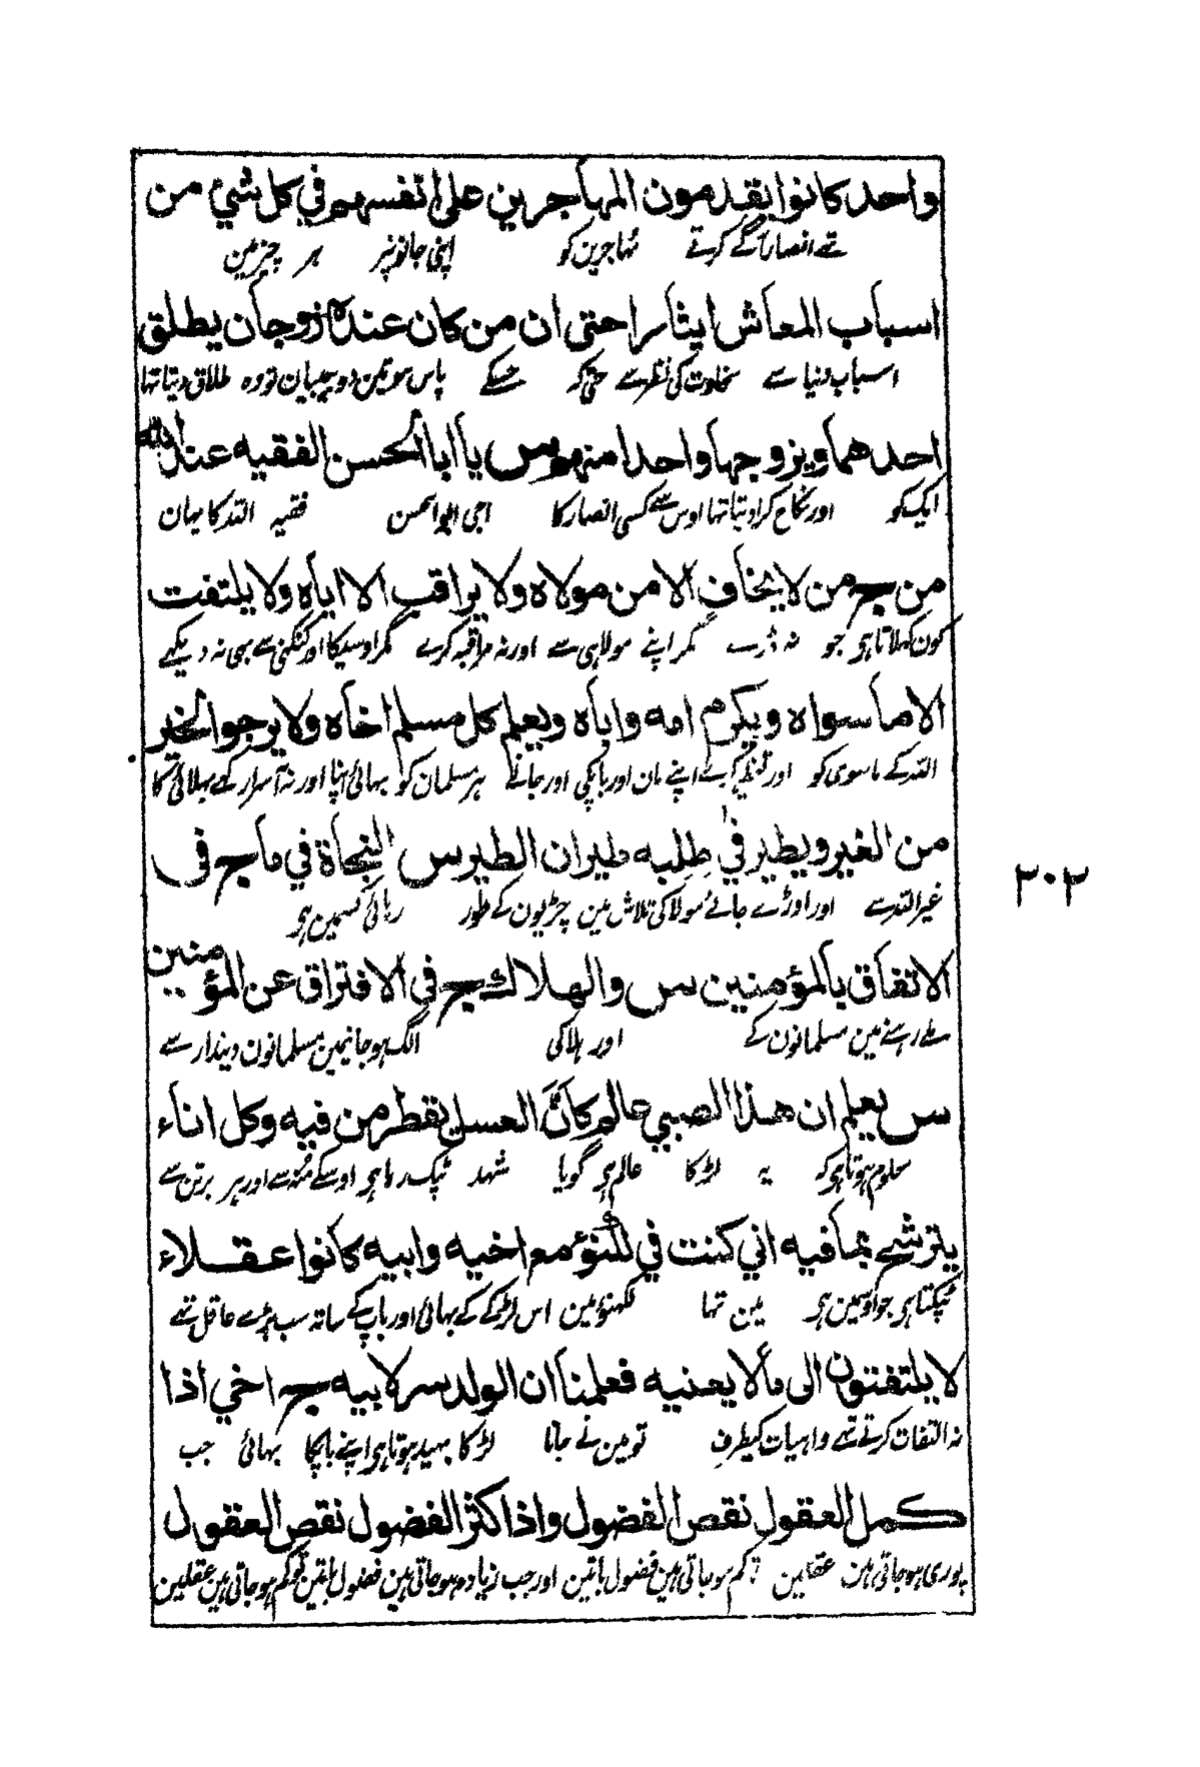 واحد كانوا يقدمون المهاجرين على انفسهم في كل شيء من
تھے انصار آگے کرتے مہاجرین کو اپنی جانوں پر ہر چیز مین
اسباب المعاش ايثارا حتى ان من كان عنده زوجان يطلق
اسباب دنیا سے سخاوت کی نظر سے حتی کہ جسکے پاس ہوتین دو بیبیان تو وہ طلاق دیتا تہا
احدهما ويزوجها واحدا منهم س يا ابا الحسن الفقيه عند الله
ایک کو اور نکاح کرا دیتا تہا اوس سے کسی انصار کا اجی ابو الحسن فقیہ اللہ کا یہان
من ج من لا يخاف الا من مولاه ولا يراقب الا اياه ولا يلتفت
کون کہلاتا ہی جو نہ ڈرے مگر اپنے مولا ہی سے اور نہ مراقبہ کرے مگر اوسیکا اور کنکنی سے بھی نہ دیکہے
الا ما سواه ويكرم امه واباه ويعلم كل مسلم اخاه ولا يرجو الخير
اللہ کے ماسوی کو اور تعظیم کرے اپنے مان اور باپ کی اور جانے ہر مسلمان کو بہائی اپنا اور نہ آسرا رکہے بہلائی کا
من الغير ويطير في طلبه طيران الطير س النجاة في ما ج فى
غیر اللہ سے اور اوڑے جائے مولا کی تلاش مین چڑیون کے طور رہائی کسمین ہی
الاتفاق بالمؤمنين س والهلاك ج في الافتراق عن المؤمنين
ملے رہنے مین مسلمانون کے اور ہلاکی الگ ہو جانیمین مسلمانون دیندار سے
س يعلم ان هذا الصبي عالم كأنّ العسل يقطر من فيه وكل اناء
معلوم ہوتا ہی کہ یہ لڑکا عالم ہی گویا شہد ٹپک رہا ہی اوسکے منہ سے اور ہر برتن سے
يترشح بما فيه اني كنت في لكنؤ مع اخيه وابيه كانوا عقلاء
ٹپکتا ہی جو اوسمین ہی مین تہا لکہنؤ مین اس لڑکے کے بہائی اور باپ کے ساتہ سب بڑے عاقل تہے
لا يلتفتون الى ما لا يعنيه فعلمنا ان الولد سر لابيه ج اخي اذا
نہ التفات کرتے تہے واہیات کیطرف تو مین نے جانا لڑکا بہید ہوتا ہی اپنے باپکا بہائی جب
كمل العقول نقص الفضول واذا كثر الفضول نقص العقول
پوری ہو جاتی ہین عقلین کم ہو جاتی ہین فضول باتین اور جب زیادہ ہو جاتی ہین فضول باتین تو کم ہو جاتی ہین عقلین
٣٠٢